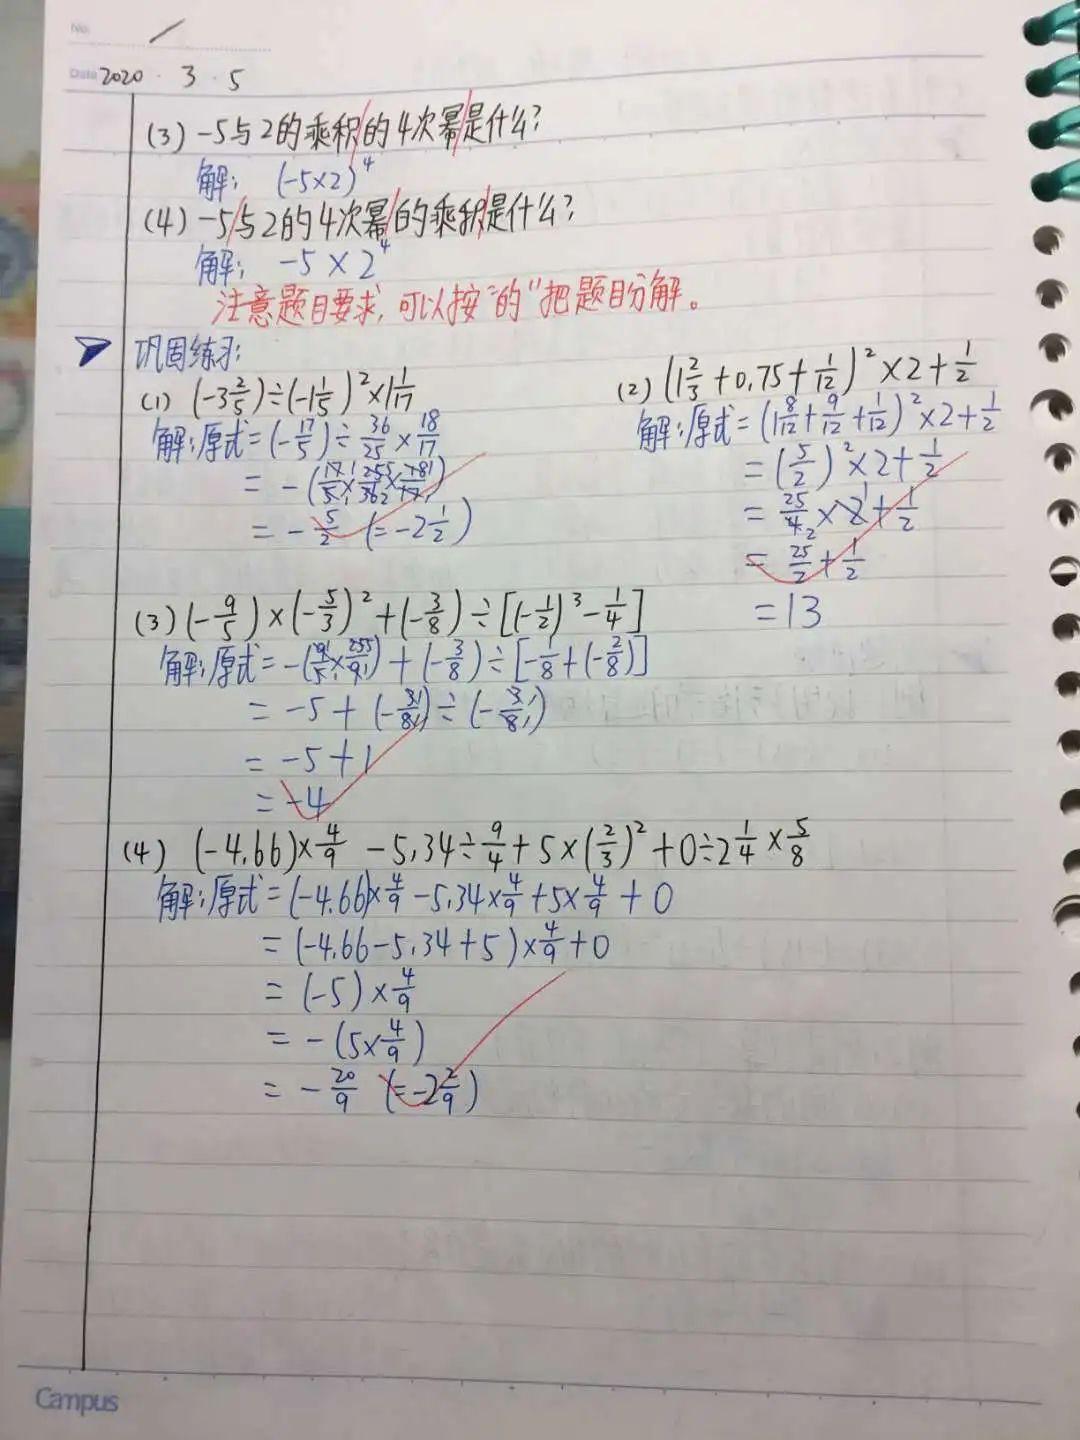 No.
Date 2020 · 3 · 5
(3) -5与2的乘积的4次幂是什么?
解: (-5×2)⁴
(4) -5与2的4次幂的乘积是什么?
解: -5×2⁴
注意题目要求,可以按"的"把题目分解。
巩固练习:
(1) (-3 2/5)÷(-1 1/5)²×1 1/17
解:原式=(-17/5)÷36/25×18/17
=-(17/5×25/36×18/17)
=-5/2 (=-2 1/2)
(2) (1 2/3+0.75+1/12)²×2+1/2
解:原式=(1 8/12+9/12+1/12)²×2+1/2
=(5/2)²×2+1/2
=25/4×2+1/2
=25/2+1/2
=13
(3) (-9/5)×(-5/3)²+(-3/8)÷[(-1/2)³-1/4]
解:原式=-(9/5×25/9)+(-3/8)÷[-1/8+(-2/8)]
=-5+(-3/8)÷(-3/8)
=-5+1
=-4
(4) (-4.66)×4/9-5.34÷9/4+5×(2/3)²+0÷2 1/4×5/8
解:原式=(-4.66)×4/9-5.34×4/9+5×4/9+0
=(-4.66-5.34+5)×4/9+0
=(-5)×4/9
=-(5×4/9)
=-20/9 (=-2 2/9)
Campus